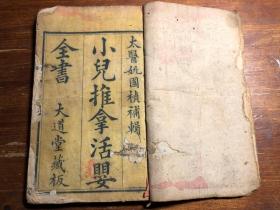 太醫姚國楨補輯
小兒推拿活嬰
全書
大道堂藏板